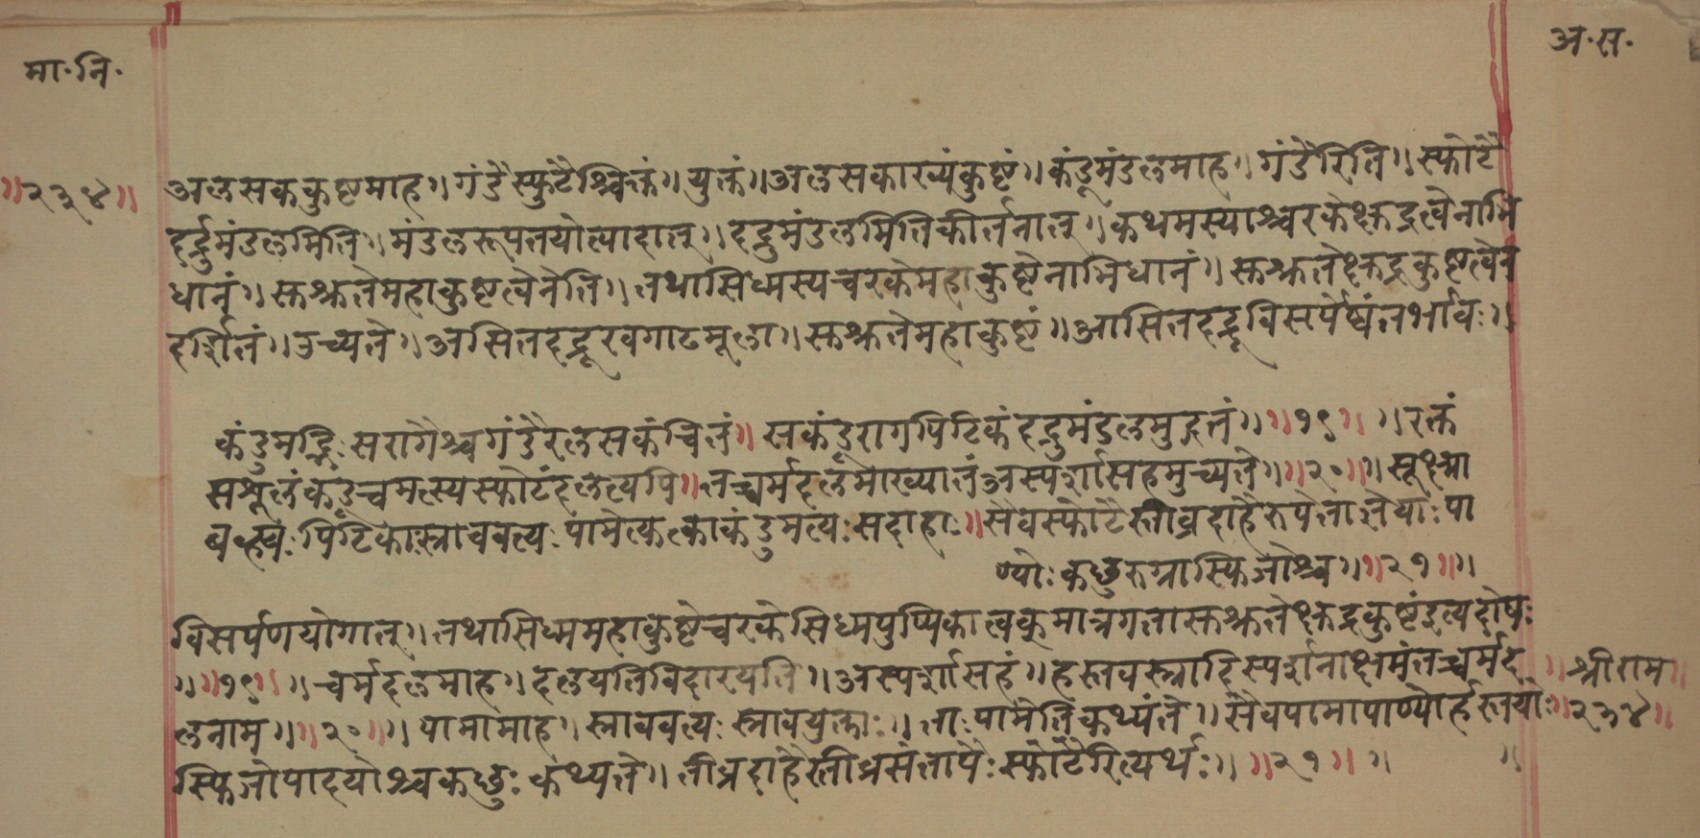 मा·नि·
अ·स·
॥२३४॥
अलसककुष्टमाह॥ गंडैस्फुटैश्चितं॥ युक्तं॥ अलसकाख्यंकुष्टं॥ कंडूमंडलमाह॥ गंडैरिति॥ स्फोटै
दर्द्रुमंडलमिति॥ मंडलरूपतयोत्पादात्॥ दद्रुमंडलमितिकीर्तनात्॥ कथमस्याश्चरकेक्षुद्रत्वेनाभि
धानं॥ सुश्रुतेमहाकुष्टत्वेनेति॥ तथासिध्मस्यचरकेमहाकुष्टेनाभिधानं॥ सुश्रुतेक्षुद्रकुष्टत्वेन
दर्शितं॥ उच्यते॥ असितदद्रूरवगाढमूला॥ सुश्रुतेमहाकुष्टं॥ आसितदद्रूविसर्पेष्वंतर्भावः॥
कंडुमद्भिः सरागैश्चगंडैरलसकंचितं॥ सकंडूरागपिटिकंदद्रुमंडलमुद्गतं॥ ॥१९॥ ॥रक्तं
सशूलंकंडूच्चमत्स्यस्फोटंदलत्यपि॥ तच्चर्मदलमाख्यातंअस्पर्शासहमुच्यते॥ ॥२०॥ ॥सूक्ष्मा
बह्व्यः पिटिकाःस्राववत्यः पामेत्युक्ताकंडुमत्यः सदाहाः॥ सैवस्फोटैस्तीव्रदाहैरुपेताज्ञेयाः पा
ण्योः कछुरुग्रास्फिजोश्च॥ ॥२१॥ ॥
विसर्पणयोगात्॥ तथासिध्ममहाकुष्टेचरकेसिध्मपुष्पिकात्वक्मात्रगतासुश्रुतेक्षुद्रकुष्टंइत्यदोषः
॥ ॥१९॥ ॥चर्मदलमाह॥ दलयतिविदारयति॥ अस्पर्शासहं॥ हस्तवस्त्रादिस्पर्शनाक्षमंतच्चर्मद
॥श्रीराम॥
लनाम्॥ ॥२०॥ ॥पामामाह॥ स्राववत्यः स्रावयुक्ताः॥ ताः पामेतिकथ्यंते॥ सैवपामापाण्योर्हस्तयोः
॥२३४॥
स्फिजोपादयोश्चकछुः कथ्यते॥ तीव्रदाहैस्तीव्रसंतापैः स्फोटैरित्यर्थः॥ ॥२१॥ ॥ ॥